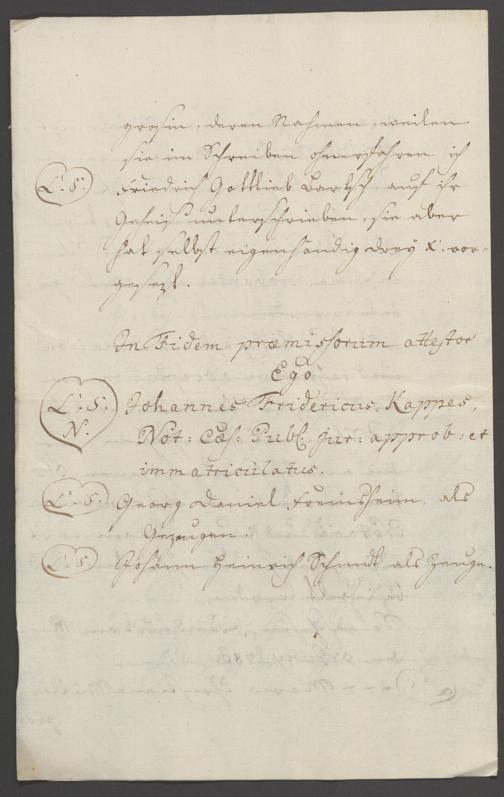 grosin, deren Nahmen, weilen
sie im Schreiben ohnerfahren ich
L: S: Friedrich Gottlieb Bartsch auf ihr
Geheis unterschrieben, sie aber
hat selbst eigenhändig drey X. vor-
gesezt.
In Fidem præmissorum attestor
Ego
L: S: Johannes Fridericus Kappes,
N. Not: Cæs: Publ: jur: approb: et
immatriculatus.
L: S: Georg Daniel Freinsheim als
Gezeugen.
L: S: Johann Heinrich Schmidt als Zeuge.